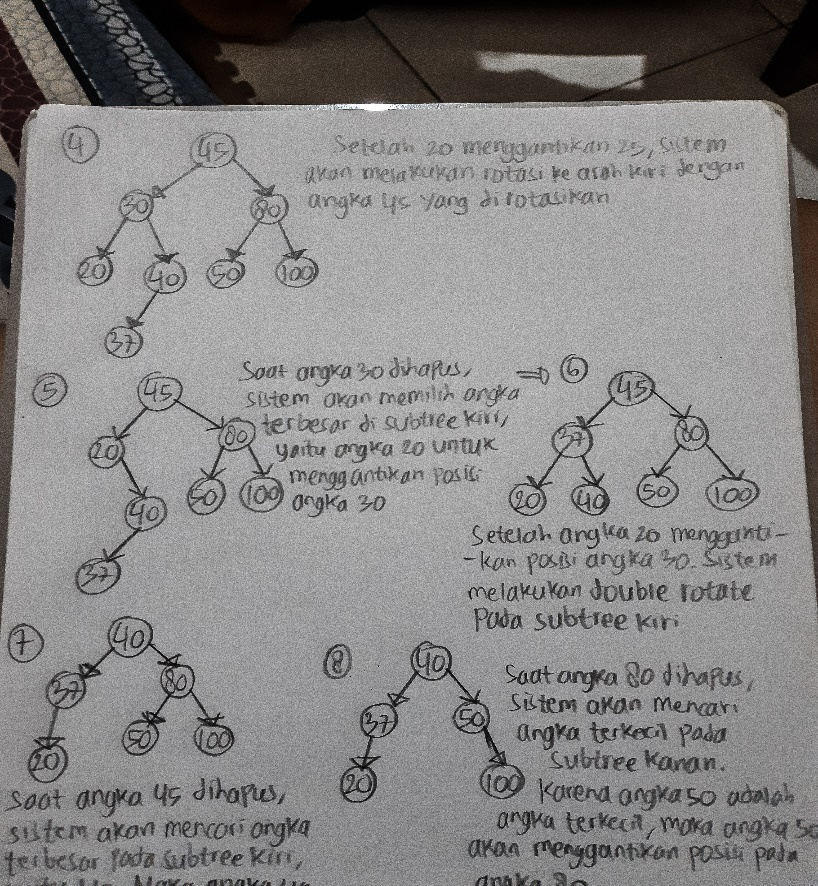 4
45
Setelah 20 menggantikan 25, sistem
akan melakukan rotasi ke arah kiri dengan
angka 45 yang dirotasikan
30 80
20 40 50 100
37
5
45
Saat angka 30 dihapus,
sistem akan memilih angka
terbesar di subtree kiri,
yaitu angka 20 untuk
menggantikan posisi
angka 30
20 80
40 50 100
37
⇒ 6
45
37 80
20 40 50 100
Setelah angka 20 mengganti-
-kan posisi angka 30. Sistem
melakukan double rotate
Pada subtree kiri
7
40
37 80
20 50 100
Saat angka 45 dihapus,
sistem akan mencari angka
terbesar pada subtree kiri,
8
40
37 50
20 100
Saat angka 80 dihapus,
sistem akan mencari
angka terkecil pada
subtree kanan.
Karena angka 50 adalah
angka terkecil, maka angka 50
akan menggantikan posisi pada
angka 80